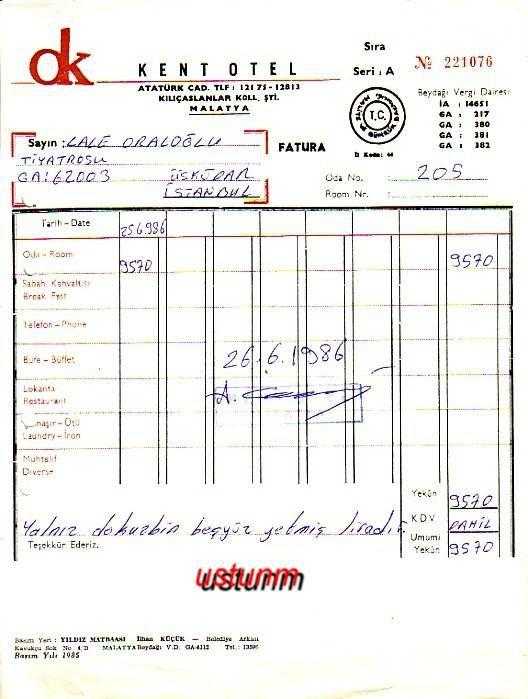 dk
KENT OTEL
ATATÜRK CAD. TLF : 12175-12813
KILIÇASLANLAR KOLL. ŞTİ.
MALATYA
Sıra
Seri : A
№ 221076
Beydağı Vergi Dairesi
İA : 14651
GA : 217
GA : 380
GA : 381
GA : 382
T.C.
İl Kodu: 44
Sayın : LALE ORALOĞLU
TİYATROSU
GA:62003 ÜSKÜDAR
İSTANBUL
FATURA
Oda No. 205
Room Nr.
Tarih - Date 25.6.986
Oda - Room 9570 9570
Sabah Kahvaltısı
Break Fest
Telefon - Phone
Büfe - Büffet
26.6.1986
Lokanta
Restaurant
Çamaşır - Ütü
Laundry - Iron
Muhtelif
Diverse
Yekün 9570
KDV DAHİL
Umumi
Yekün 9570
Yalnız dokuzbin beşyüz yetmiş liradır.
Teşekkür Ederiz.
ustunm
Basım Yeri : YILDIZ MATBAASI İlhan KÜÇÜK — Belediye Arkası
Kavukçu Sok No 4/D MALATYA Beydağı V.D. GA-4112 Tel. : 13596
Basım Yılı 1985